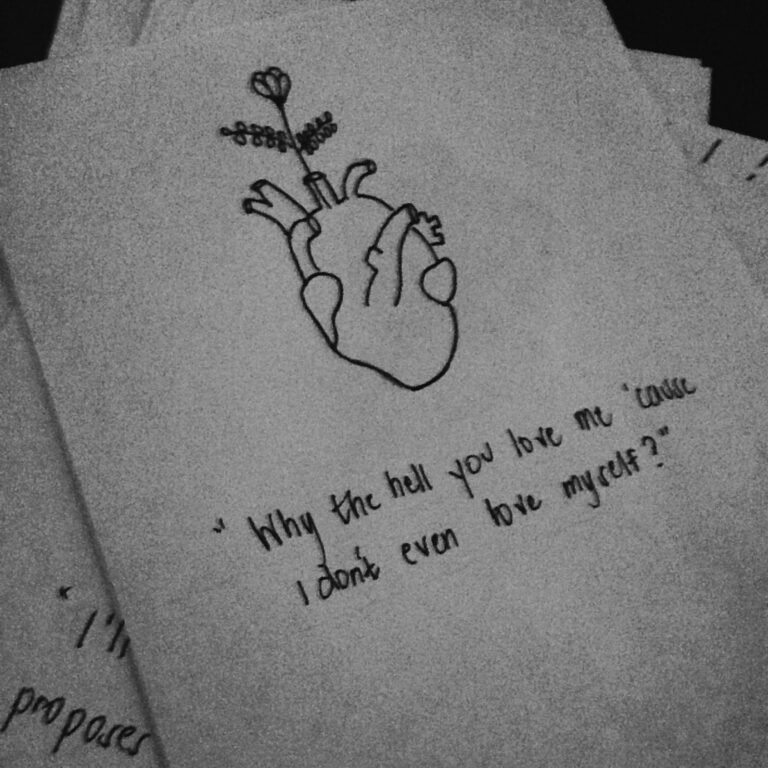 " Why the hell you love me 'cause
I don't even love myself?"
" I'll
proposes